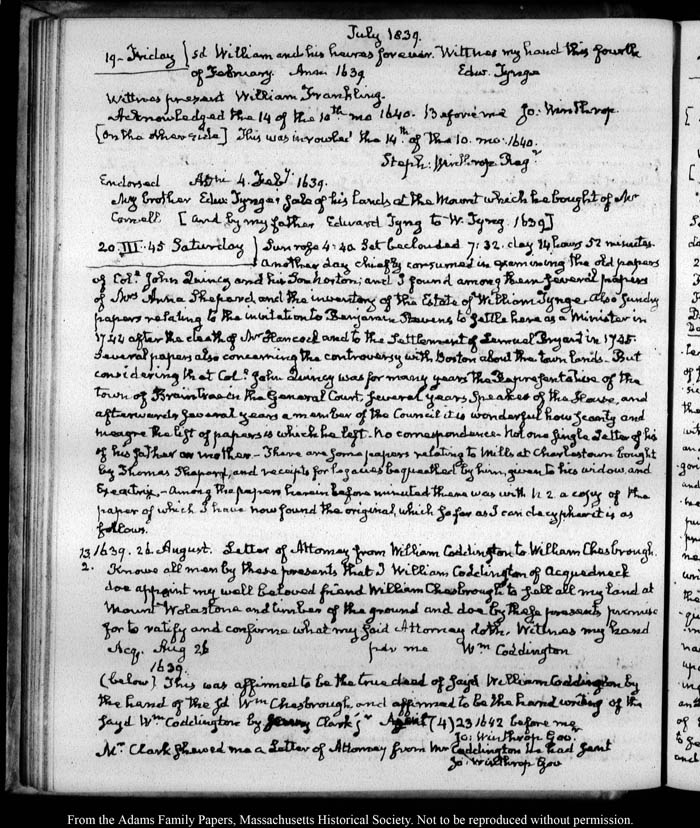 July 1839.
19. Friday } sd William and his heures for ever. Wittnes my hand this fourth
of February. Anno 1639 Edw. Tynge
Wittnes present William Frankling.
Acknowledged the 14 of the 10th mo 1640. Before me Jo: Winthrop
[On the other side] This was inroled the 14th of the 10. mo: 1640.
Steph: Winthrop Regr
Endorsed 4. Feby 1639.
My brother Edw: Tynges sale of his lands at the Mount which he bought of Mr
Cornell. [and by my father Edward Tyng to W. Tyng. 1639]
20. III. 45 Saturday } Sun rose 4:40 Set beclouded 7:32. day 14 hours 52 minutes.
Another day chiefly consumed in examining the old papers
of Coll John Quincy and his Tombstone; and I found among them several papers
of Mrs Anna Sheperd, and the inventory of the Estate of William Tynge. Also sundry
papers relating to the invitation to Benjamin Stevens to settle here as a Minister in
1744 after the death of Mr Hancock and to the Settlement of Lemuel Bryant in 1745.
Several papers also concerning the controversy with Boston about the town lands. But
considering that Coll John Quincy was for many years the Representative of the
town of Braintree in the General Court, several years Speaker of the House, and
afterwards several years a member of the Council it is wonderful how scanty and
meagre the list of papers is which he left. No correspondence. Not one single Letter of his
of his father or mother. There are some papers relating to Mills at Charlestown bought
by Thomas Sheperd, and receipts for legacies bequeathed by him, given to his widow, and
Executrix. Among the papers herein before minuted there was with N. 2. a copy of the
paper of which I have now found the original, which so far as I can decypher it is as
follows.
13. 1639. 26. August. Letter of Attorney from William Coddington to William Chesbrough.
2. Knowe all men by these presents that I William Coddington of Acquedneck
doe appoint my well beloved friend William Chesbrough to sell all my land at
Mount Wolastone and timber of the ground and doe by these presents promise
for to ratify and confirme what my said Attorney doth. Wittnes my hand
Acq. Aug 26 per me Wm Coddington
1639
(below) This was affirmed to be the true deed of sayd William Coddington by
the hand of the sd Wm Chesbrough, and affirmed to be the hand writing of the
sayd Wm Coddington by Clark jr Agent (4) 23 1642 before me
Jo: Winthrop Gov.
Mr. Clark shewed me a Letter of Attorney from Mr Coddington he had sent
Jo: Winthrop Gov
From the Adams Family Papers, Massachusetts Historical Society. Not to be reproduced without permission.